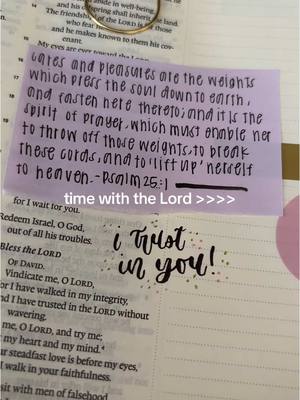 and his offspring shall inherit the land.
The friendship of the LORD is for those
who fear
and he makes known to them his cov-
enant.
My eyes are ever toward the LORD,
cares and pleasures are the weights
which press the soul down to earth,
and fasten here thereto; and it is the
spirit of prayer, which must enable her
to throw off those weights, to break
these cords, and to 'lift up' herself
to heaven. -Psalm 25:1
time with the Lord >>>>
for I wait for you.
Redeem Israel, O God,
out of all his troubles.
Bless the LORD
OF DAVID.
Vindicate me, O LORD,
for I have walked in my integrity,
and I have trusted in the LORD without
wavering.
me, O LORD, and try me;
my heart and my mind.
your steadfast love is before my eyes,
I walk in your faithfulness.
sit with men of falsehood
i trust
in you!